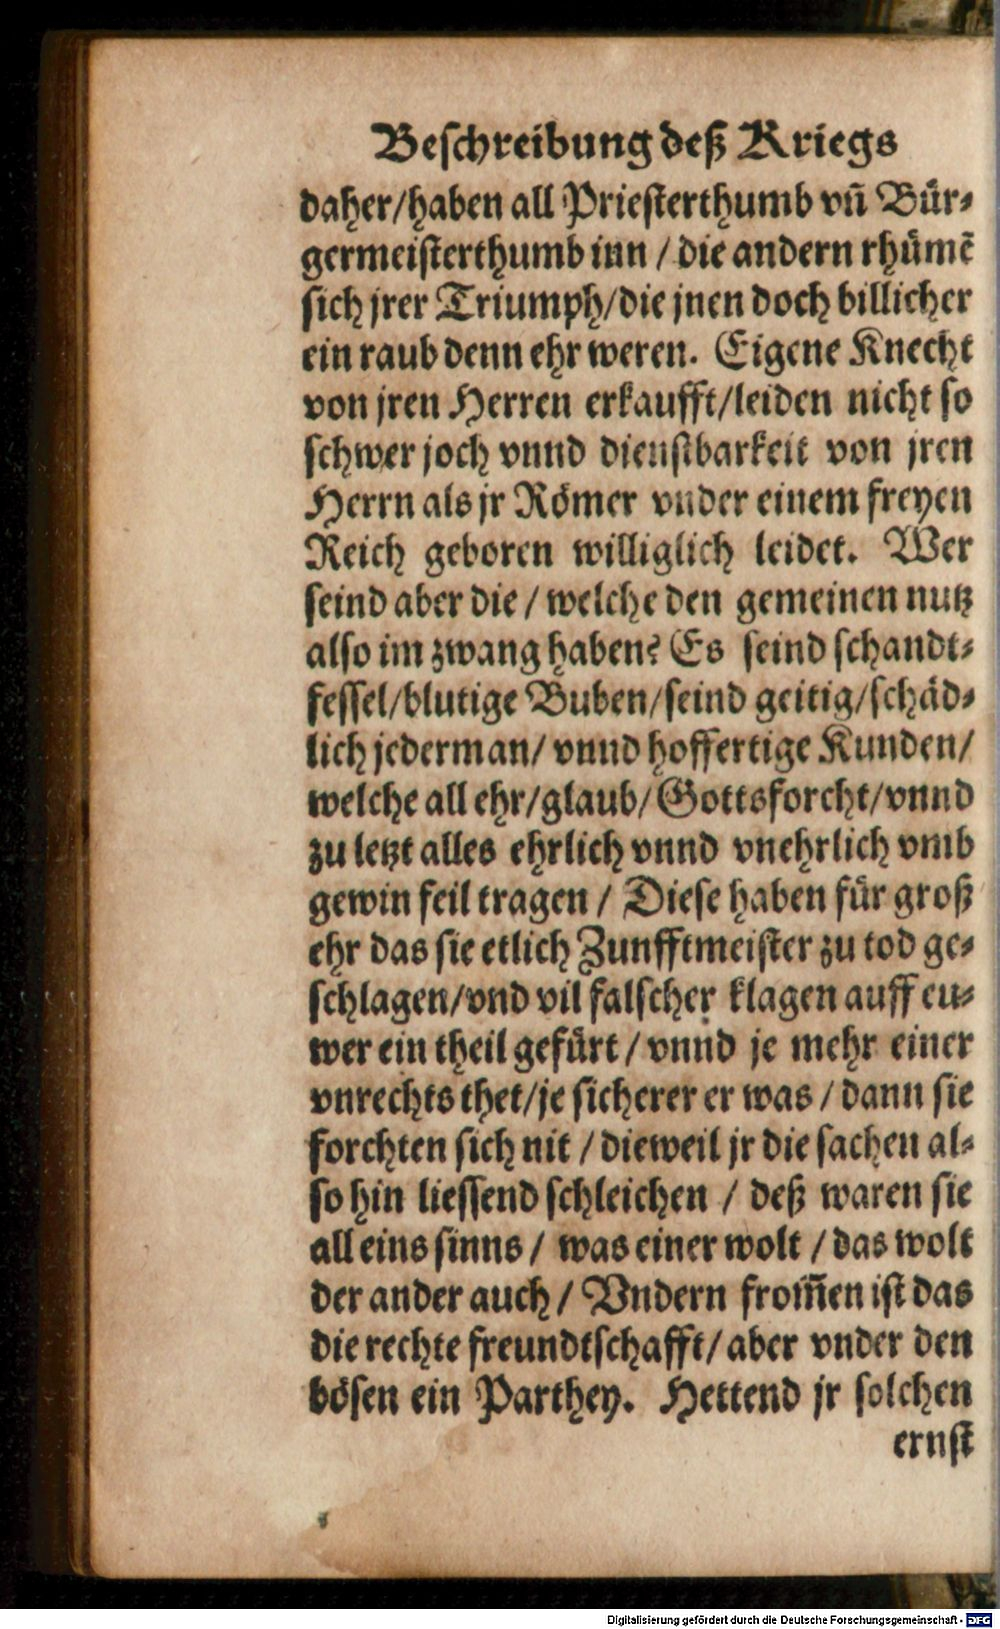 Beschreibung deß Kriegs
daher/haben all Priesterthumb vñ Bür⸗
germeisterthumb inn / die andern rhümẽ
sich jrer Triumph/die jnen doch billicher
ein raub denn ehr weren. Eigene Knecht
von jren Herren erkaufft/leiden nicht so
schwer joch vnnd dienstbarkeit von jren
Herrn als jr Römer vnder einem freyen
Reich geboren williglich leidet. Wer
seind aber die / welche den gemeinen nutz
also im zwang haben? Es seind schandt⸗
fessel/blutige Buben/seind geitig/schäd⸗
lich jederman/ vnnd hoffertige Kunden/
welche all ehr/glaub/Gottsforcht/vnnd
zu letzt alles ehrlich vnnd vnehrlich vmb
gewin feil tragen / Diese haben für groß
ehr das sie etlich Zunfftmeister zu tod ge⸗
schlagen/vnd vil falscher klagen auff eu⸗
wer ein theil gefürt / vnnd je mehr einer
vnrechts thet/je sicherer er was / dann sie
forchten sich nit / dieweil jr die sachen al⸗
so hin liessend schleichen / deß waren sie
all eins sinns / was einer wolt / das wolt
der ander auch / Vndern from̃en ist das
die rechte freundtschafft/ aber vnder den
bösen ein Parthey. Hettend jr solchen
ernst
Digitalisierung gefördert durch die Deutsche Forschungsgemeinschaft - DFG